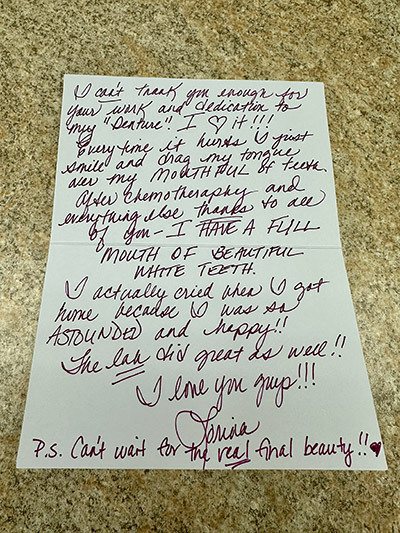 I can't thank you enough for
your work and dedication to
my "Denture". I ♡ it!!!
Everytime it hurts I just
smile and drag my tongue
over my MOUTHFUL of teeth.
After chemotheraphy and
everything else thanks to all
of you - I HAVE A FULL
MOUTH OF BEAUTIFUL
WHITE TEETH.
I actually cried when I got
home because I was so
ASTOUNDED and happy!!
The lab did great as well!!
I love you guys!!!
P.S. Can't wait for the real final beauty!!♥